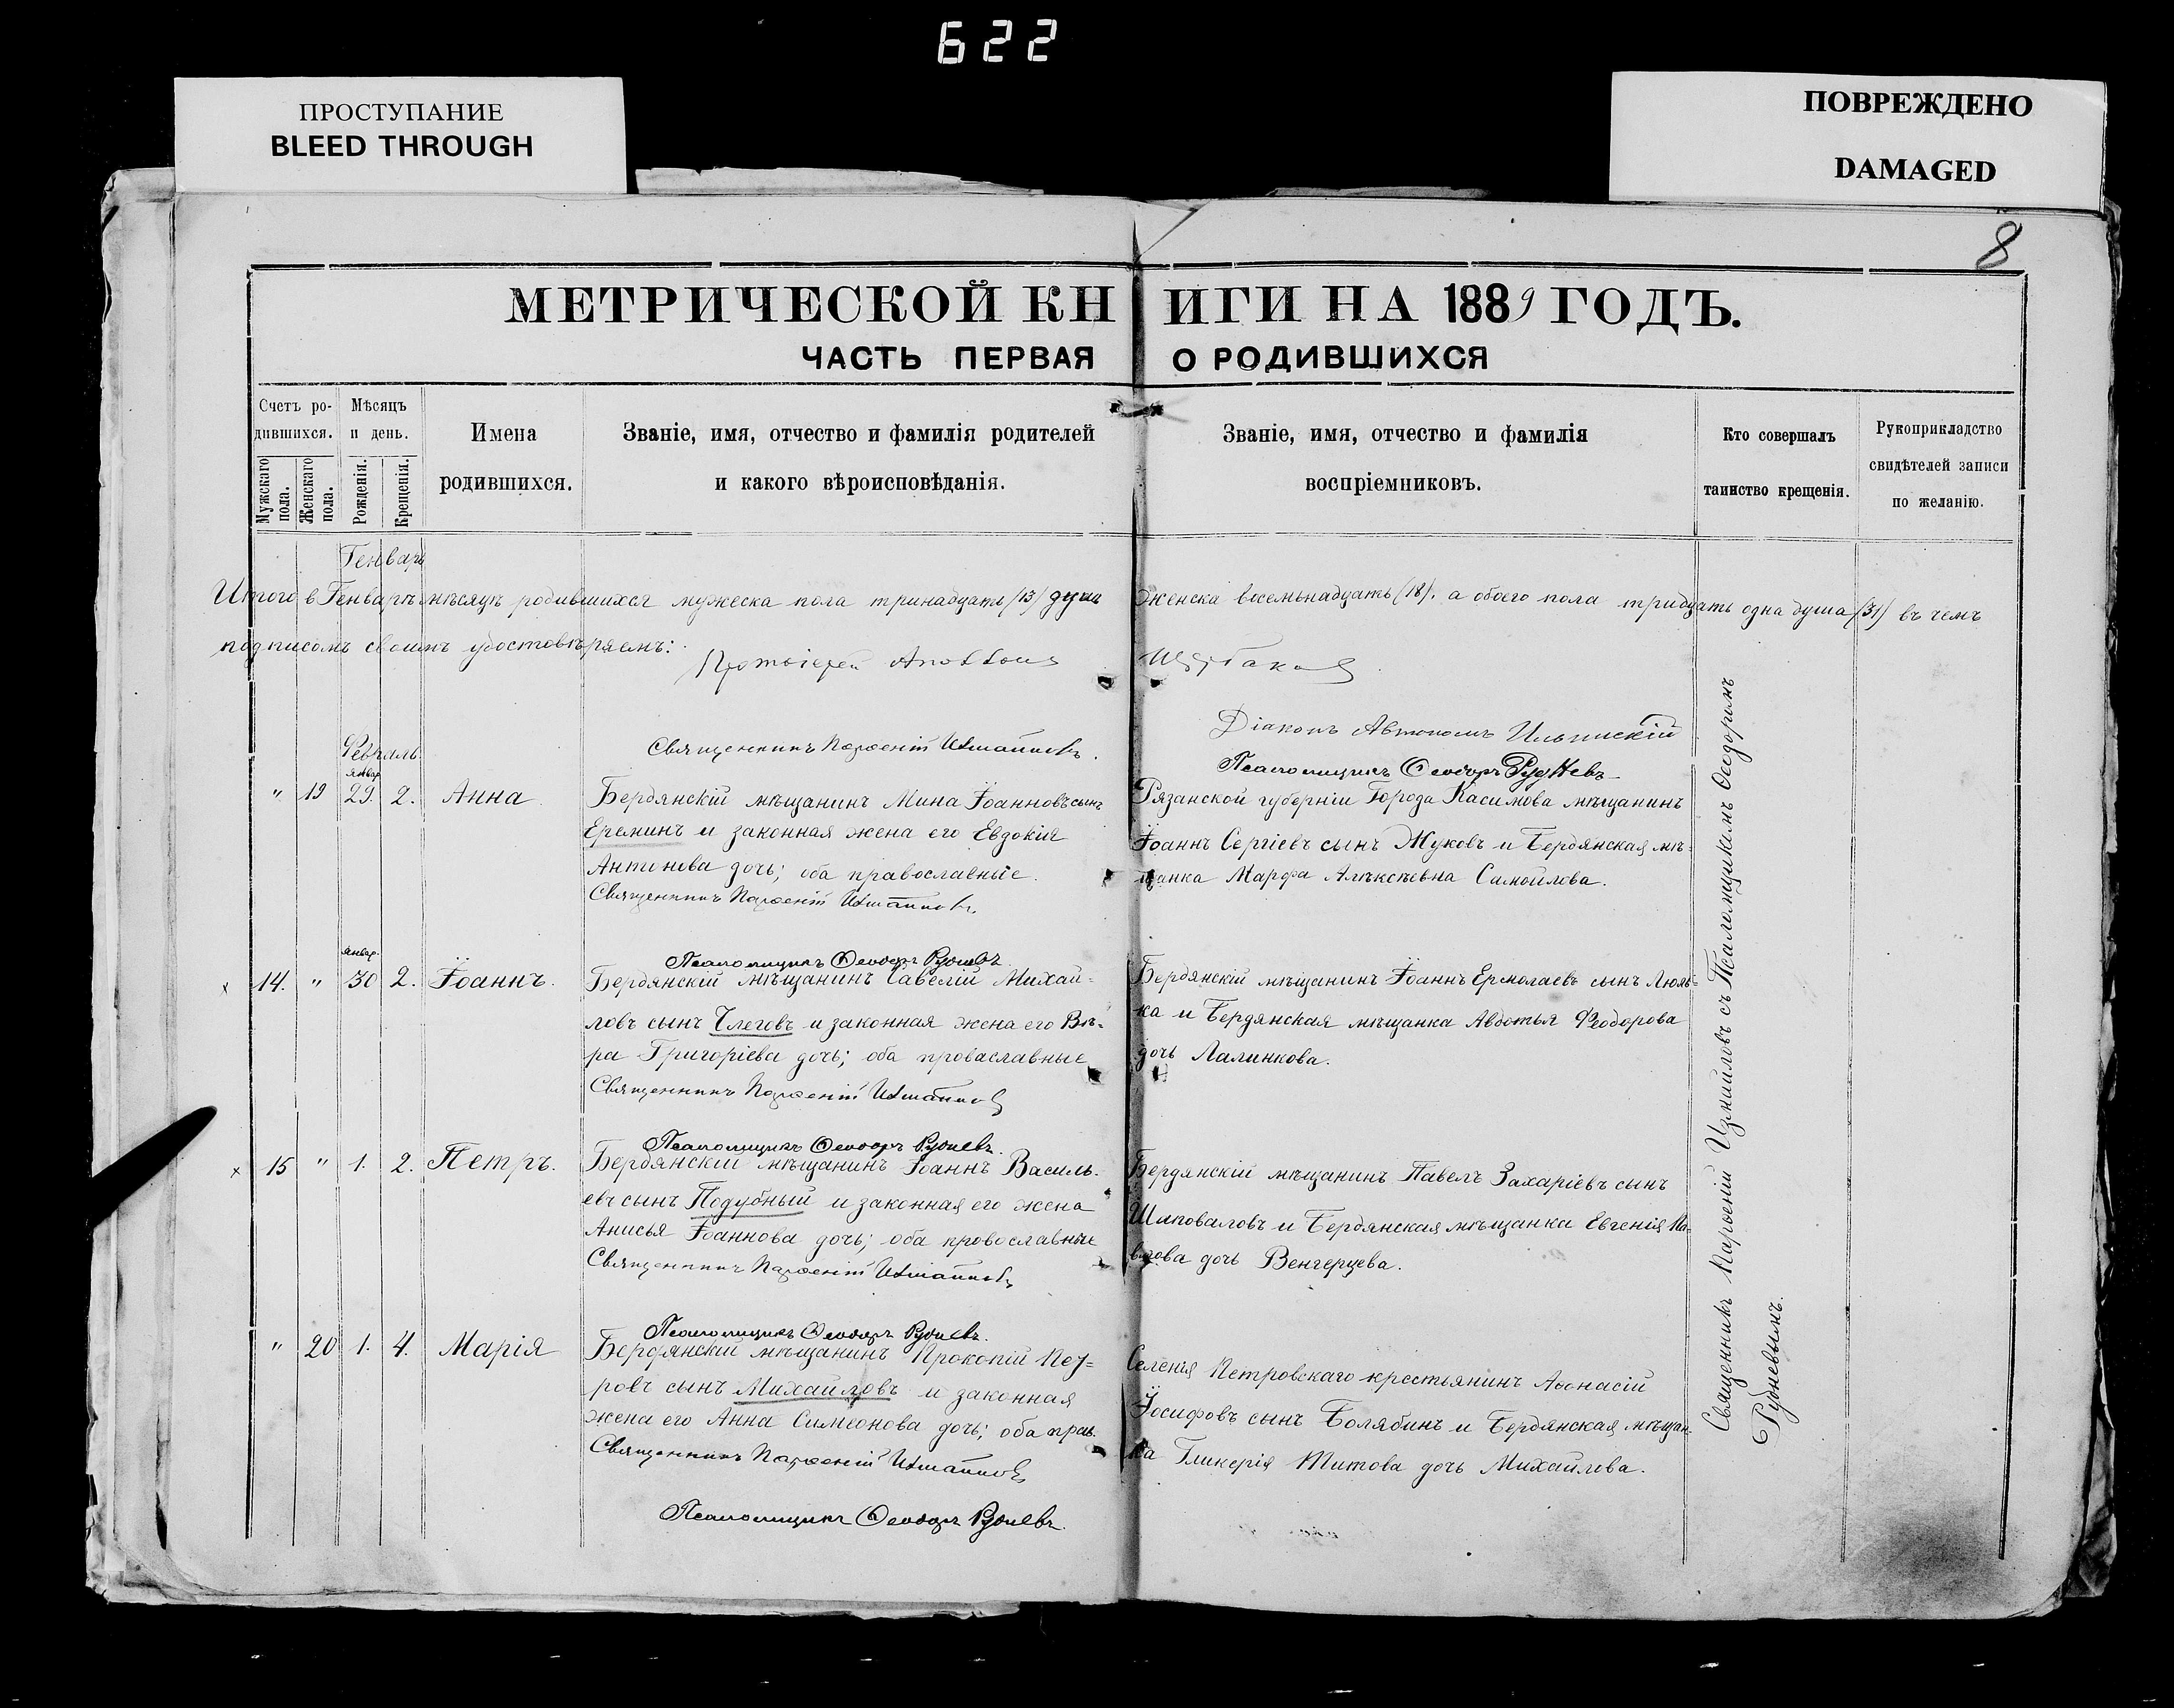 622
ПРОСТУПАНИЕ
BLEED THROUGH
ПОВРЕЖДЕНО
DAMAGED
8
МЕТРИЧЕСКОЙ КНИГИ НА 1889 ГОДЪ.
ЧАСТЬ ПЕРВАЯ О РОДИВШИХСЯ
Счетъ ро-
дившихся.
Мужскаго пола.
Женскаго пола.
Мѣсяцъ
и день.
Рожденія.
Крещенія.
Имена
родившихся.
Званіе, имя, отчество и фамилія родителей
и какого вѣроисповѣданія.
Званіе, имя, отчество и фамилія
воспріемниковъ.
Кто совершалъ
таинство крещенія.
Рукоприкладство
свидѣтелей записи
по желанію.
Генварь
Итого в Генварѣ мѣсяцѣ родившихся мужеска пола тринадцать (13) душъ женска восемьнадцать (18). а обоего пола тридцать одна душа (31) въ чемъ
подписомъ своимъ удостовѣряемъ:
Протоіерей
Священникъ Парѳеній
Діаконъ Автономъ Ильинскій
Псаломщикъ Ѳеодоръ Рудневъ
Февраль
январ.
" 19 29. 2. Анна
Бердянскій мѣщанинъ Мина Іоанновъ сынъ
Ереминъ и законная жена его Евдокія
Антинова дочь; оба православные.
Священникъ Парѳеній
Псаломщикъ Ѳеодоръ Рудневъ
Рязанской губерніи Города Касимова мѣщанинъ
Іоаннъ Сергіевъ сынъ Жуковъ и Бердянская мѣ-
щанка Марфа Алѣксѣевна Самойлова.
январ.
x 14. " 30 2. Іоаннъ.
Бердянскій мѣщанинъ Савелій Михай-
ловъ сынъ и законная жена его Вѣ-
ра Григоріева дочь; оба проваславные
Священникъ Парѳеній
Псаломщикъ Ѳеодоръ Рудневъ.
Бердянскій мѣщанинъ Іоаннъ Ермолаевъ сынъ Люль-
ка и Бердянская мѣщанка Авдотья Феодорова
дочь Лалинкова.
x 15 " 1. 2. Петръ.
Бердянскій мѣщанинъ Іоаннъ Василь-
евъ сынъ Подубный и законная его жена
Анисья Іоаннова дочь; оба провославные
Священникъ Парѳеній
Псаломщикъ Ѳеодоръ Рудневъ.
Бердянскій мѣщанинъ Павелъ Захаріевъ сынъ
Шаповаловъ и Бердянская мѣщанка Евгенія Па-
влова дочь Венгерцева.
" 20 1. 4. Марія
Бердянскій мѣщанинъ Прокопій Пет-
ровъ сынъ Михайловъ и законная
жена его Анна Симеонова дочь; оба прав.
Священникъ Парѳеній
Псаломщикъ Ѳеодоръ Рудневъ.
Селенія Петровскаго крестьянинъ Аѳанасій
Іосифовъ сынъ Болябинъ и Бердянская мѣщан-
ка Гликерія Титова дочь Михайлова.
Священникъ Парѳеній Измайловъ съ Псаломщикомъ Ѳеодоромъ
Рудневымъ.